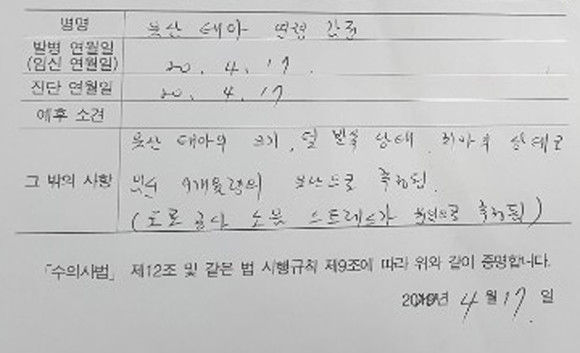 병명 유산 태아 연령 감정
발병 연월일
(임신 연월일) 20. 4. 17.
진단 연월일 20. 4. 17
예후 소견
유산 태아의 크기, 털 발육 상태, 치아의 상태로
그 밖의 사항 9개월령의 유산으로 추정됨.
(도로 공사 소음 스트레스가 원인으로 추정됨)
「수의사법」 제12조 및 같은 법 시행규칙 제9조에 따라 위와 같이 증명합니다.
년 4 월 17 일